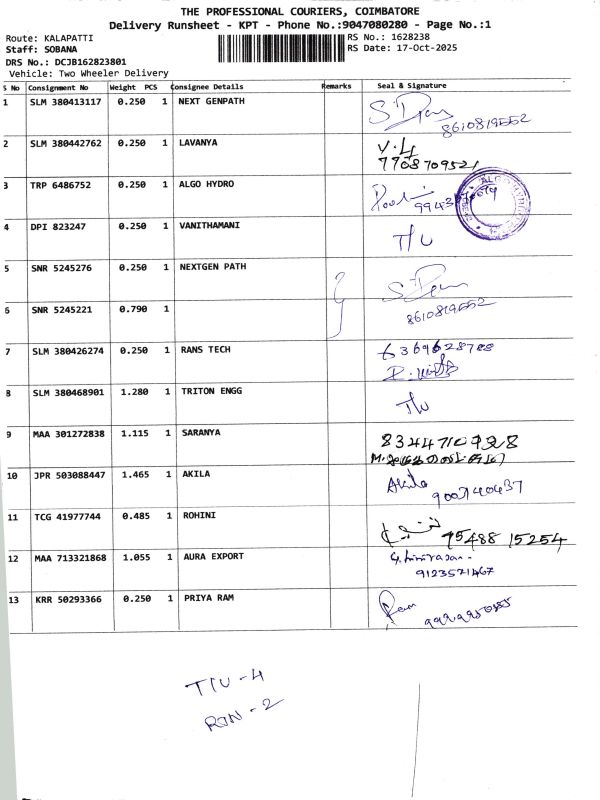 THE PROFESSIONAL COURIERS, COIMBATORE
Delivery Runsheet - KPT - Phone No.:9047080280 - Page No.:1
Route: KALAPATTI
RS No.: 1628238
Staff: SOBANA
RS Date: 17-Oct-2025
DRS No.: DCJB162823801
Vehicle: Two Wheeler Delivery
S No Consignment No Weight PCS Consignee Details Remarks Seal & Signature
1 SLM 380413117 0.250 1 NEXT GENPATH
8610819552
2 SLM 380442762 0.250 1 LAVANYA
7708709521
3 TRP 6486752 0.250 1 ALGO HYDRO
4 DPI 823247 0.250 1 VANITHAMANI T/U
5 SNR 5245276 0.250 1 NEXTGEN PATH
6 SNR 5245221 0.790 1
8610819552
7 SLM 380426274 0.250 1 RANS TECH 6369628788
8 SLM 380468901 1.280 1 TRITON ENGG T/U
9 MAA 301272838 1.115 1 SARANYA 8344710928
10 JPR 503088447 1.465 1 AKILA Akila
11 TCG 41977744 0.485 1 ROHINI
75488 15254
12 MAA 713321868 1.055 1 AURA EXPORT S.Srinivasan.
9123571467
13 KRR 50293366 0.250 1 PRIYA RAM Ram
T/U - 4
RTN - 2